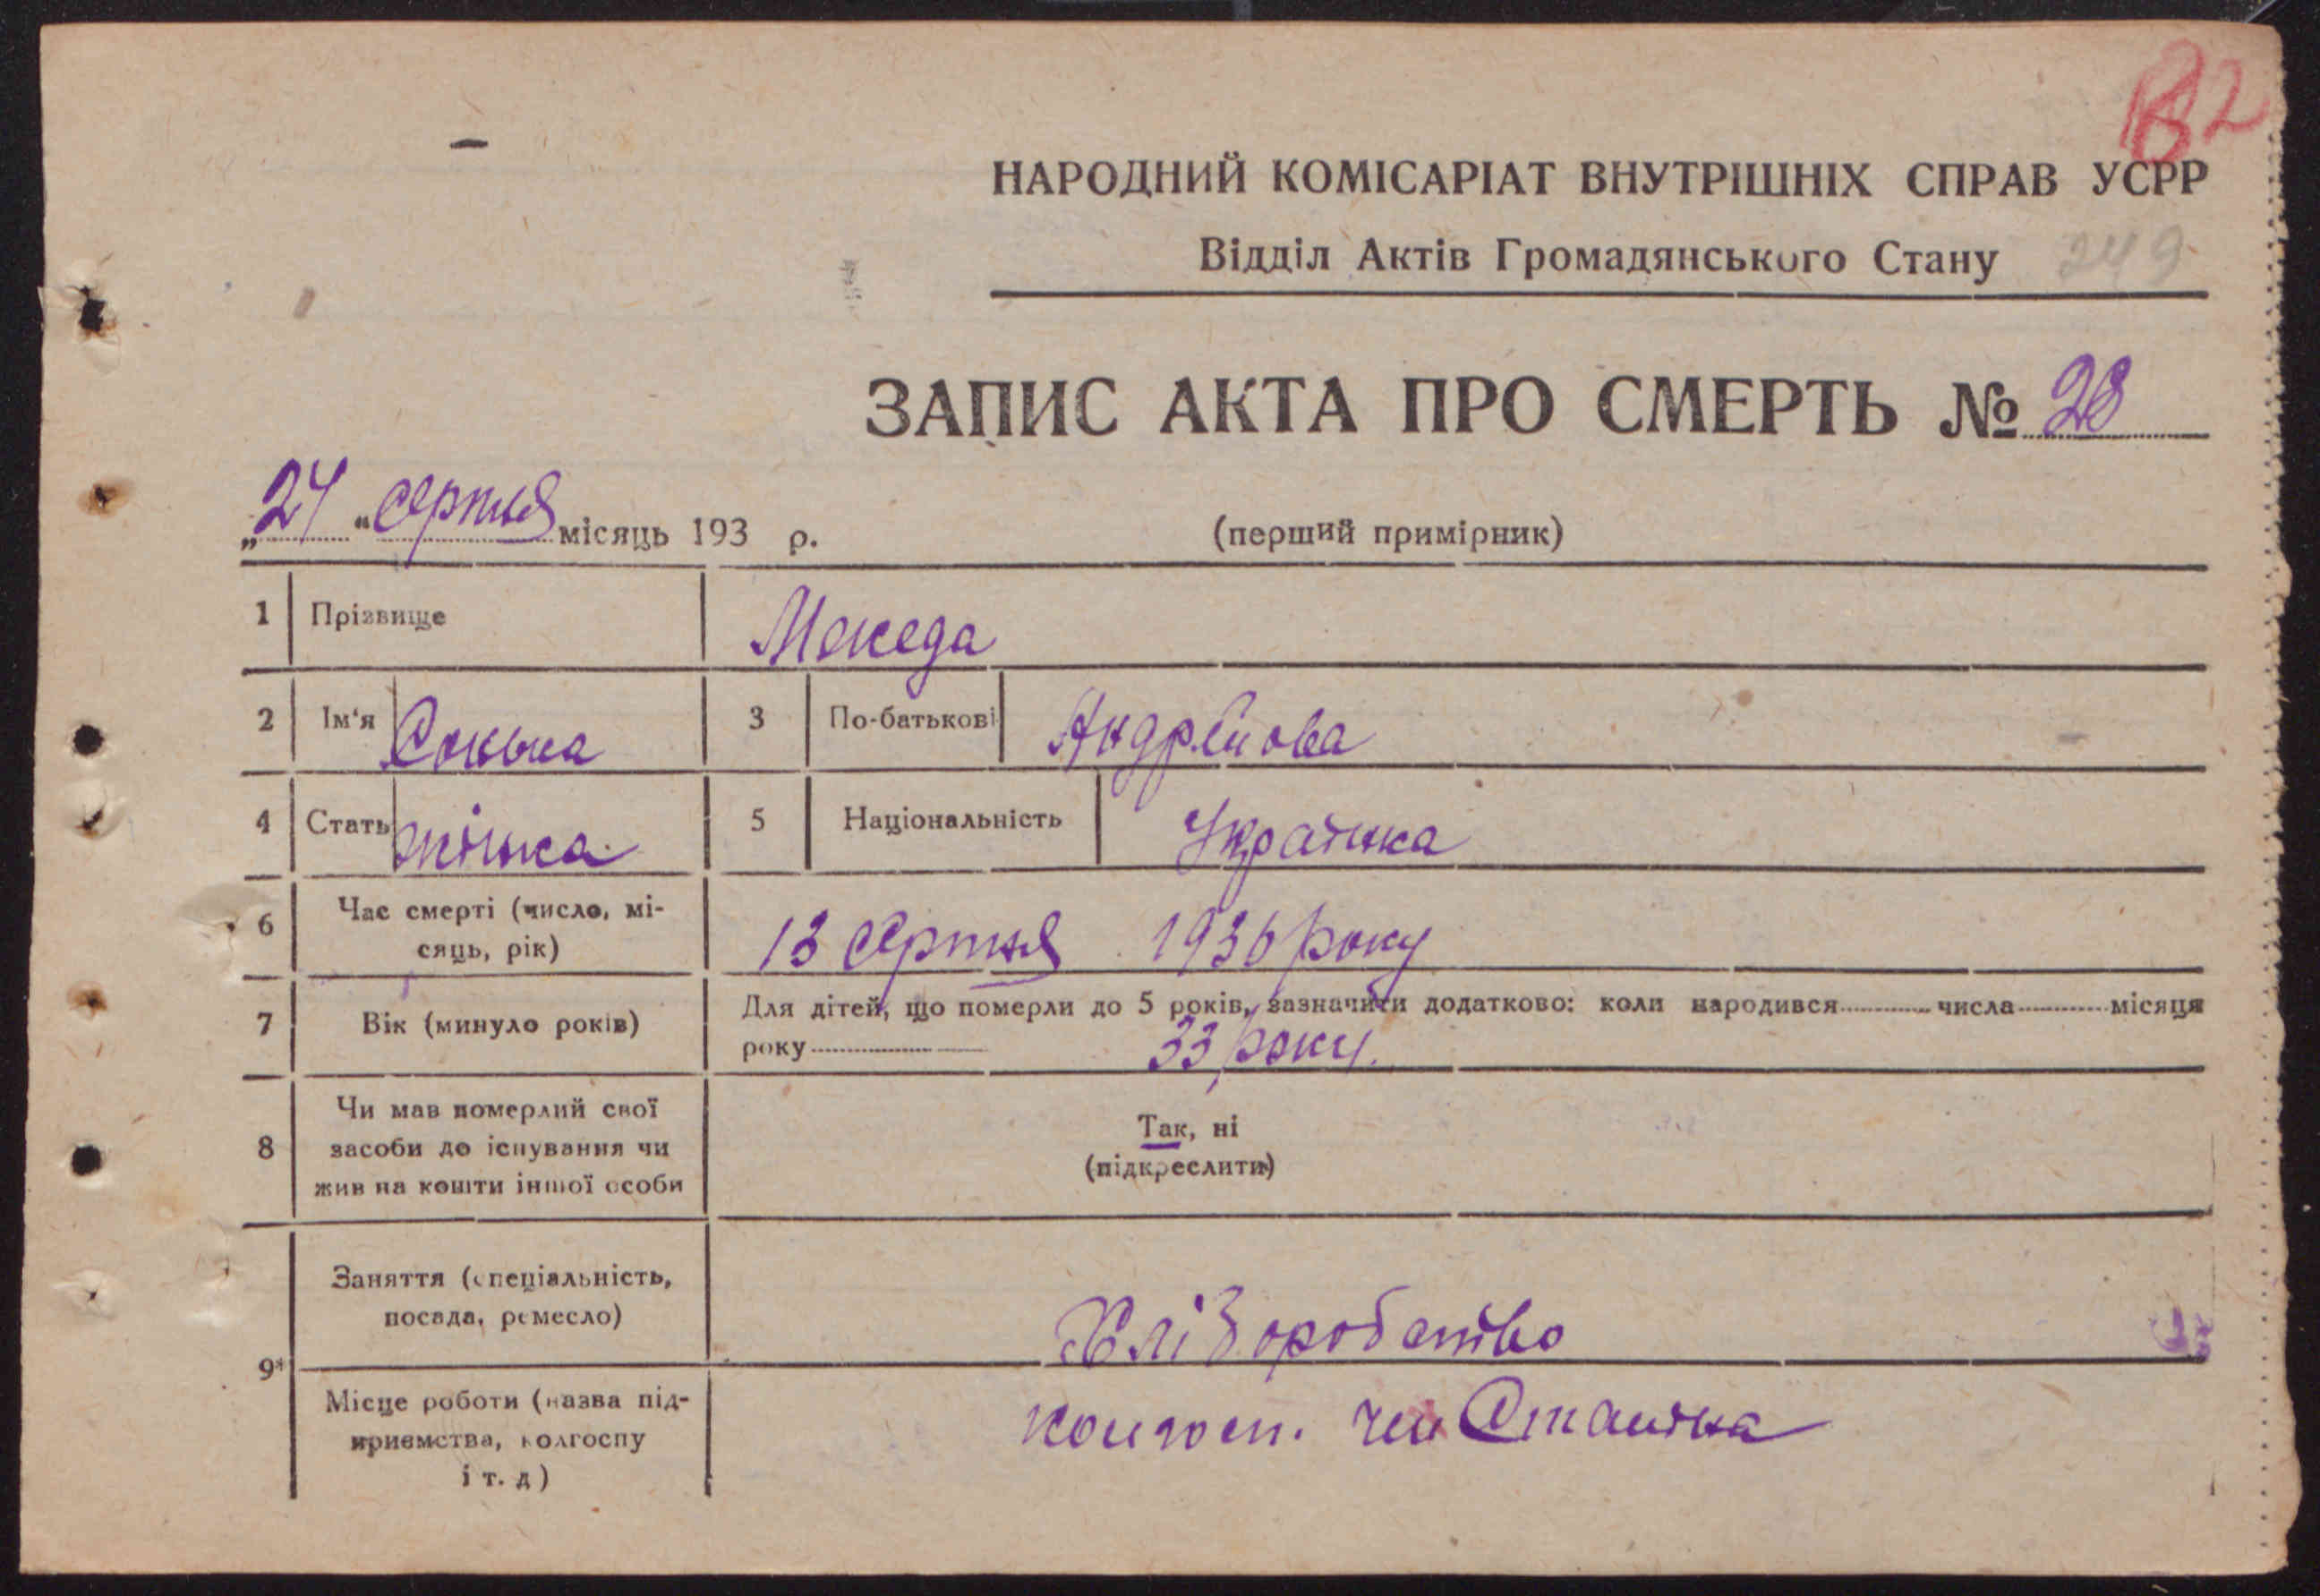 82
НАРОДНИЙ КОМІСАРІАТ ВНУТРІШНІХ СПРАВ УСРР
Відділ Актів Громадянського Стану 249
ЗАПИС АКТА ПРО СМЕРТЬ № 28
„24 “ серпня місяць 193 р.
(перший примірник)
1 Прізвище Мекеда
2 Ім'я Сонька 3 По-батькові Андрейова
4 Стать жінка 5 Національність Українка
6 Час смерті (число, мі-
сяць, рік) 13 серпня 1936 року
7 Вік (минуло років) Для дітей, що померли до 5 років, зазначити додатково: коли народився числа місяця
року 33 року.
8 Чи мав померлий свої
засоби до існування чи
жив на кошти іншої особи
Так, ні
(підкреслити)
9* Заняття (спеціальність,
посада, ремесло) Хліборобство
Місце роботи (назва під-
приємства, колгоспу
і т. д) колгосп. Сталіна